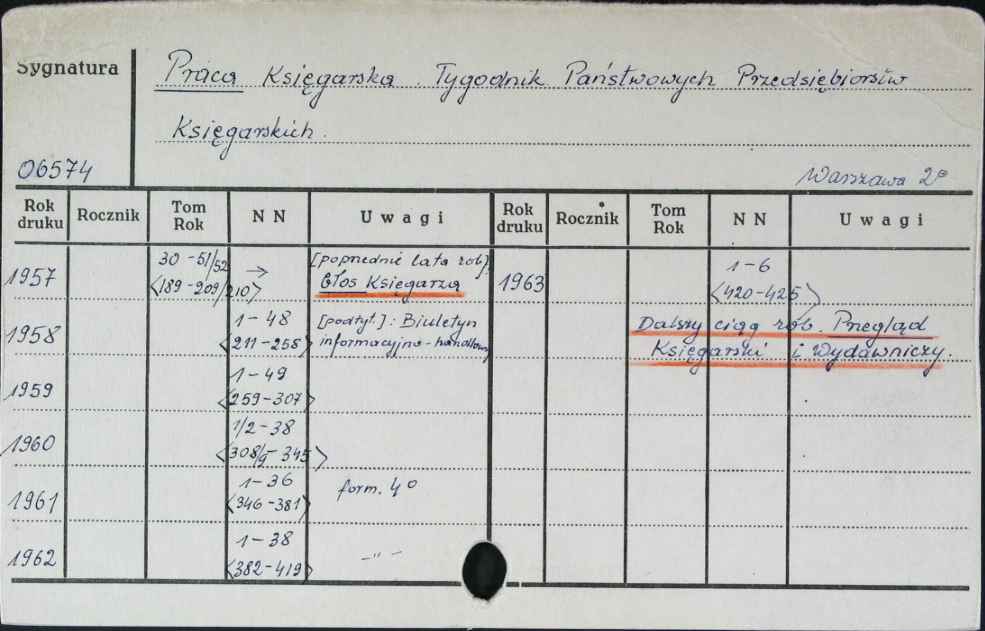 Sygnatura
Praca Księgarska. Tygodnik Państwowych Przedsiębiorstw
Księgarskich.
06574
Warszawa 2°
Rok druku Rocznik Tom Rok N N Uwagi Rok druku Rocznik Tom Rok N N Uwagi
1957 30-51/52 <189-209/210> → [poprzednie lata rob] Głos Księgarza
1958 1-48 <211-258> [podtyt.]: Biuletyn informacyjno-handlowy
1959 1-49 <259-307>
1960 1/2-38 <308/9-345>
1961 1-36 <346-381> form. 4°
1962 1-38 <382-419> -"-
1963 1-6 <420-425>
Dalszy ciąg rob. Przegląd
Księgarski i Wydawniczy.